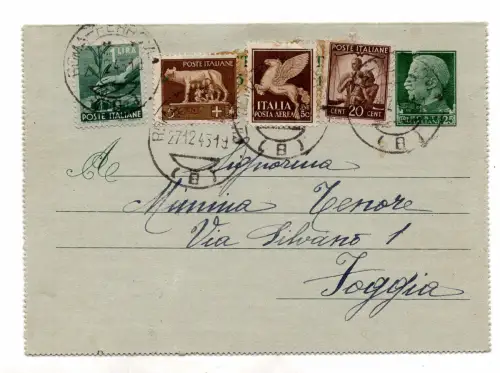 1 LIRA
POSTE ITALIANE
POSTE ITALIANE
5
ITALIA
POSTA AEREA
50
POSTE ITALIANE
CENT 20 CENT
25
ROMA-FERROVIA
27.12.45.19
(B)
(B)
(B)
A Signorina
Mimma Tenore
Via Silvano 1
Foggia